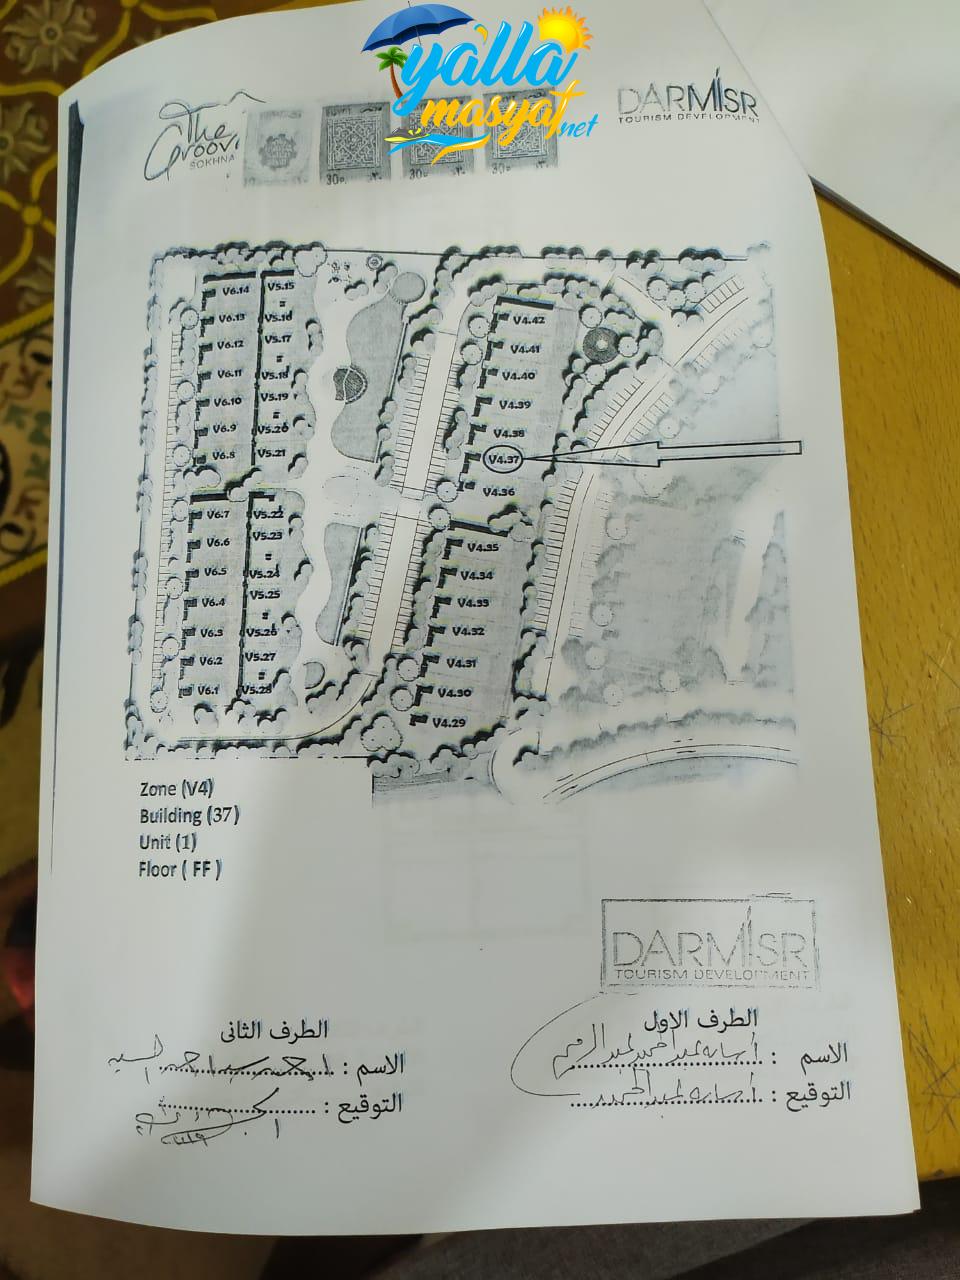 yalla
masyaf.net
The
Groove
SOKHNA
DARMISR
TOURISM DEVELOPMENT
30
30
30
V6.14
V6.13
V6.12
V6.11
V6.10
V6.9
V6.8
V5.15
V5.16
V5.17
V5.18
V5.19
V5.20
V5.21
V6.7
V6.6
V6.5
V6.4
V6.3
V6.2
V6.1
V5.22
V5.23
V5.24
V5.25
V5.26
V5.27
V5.28
V4.42
V4.41
V4.40
V4.39
V4.38
V4.37
V4.36
V4.35
V4.34
V4.33
V4.32
V4.31
V4.30
V4.29
Zone (V4)
Building (37)
Unit (1)
Floor ( FF )
DARMISR
TOURISM DEVELOPMENT
الطرف الاول
الاسم : أسامه عبد الحميد عبد الرحمن
التوقيع : أسامه عبد الحميد
الطرف الثانى
الاسم : احمد سيد احمد السيد
التوقيع :